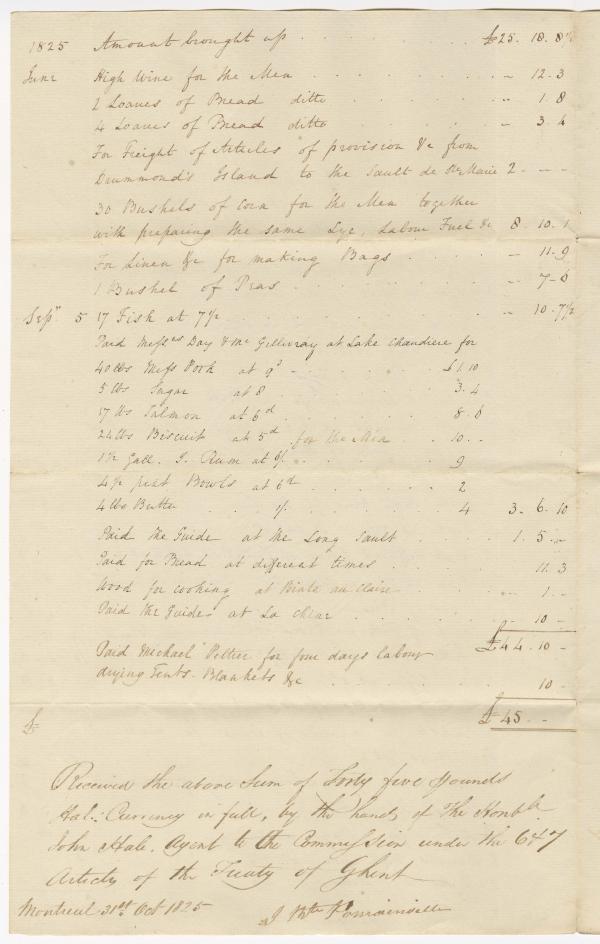 1825 Amount brought up . . . £25. 18. 8½
June High Wine for the Men . . . - 12. 3
2 Loaves of Bread ditto . . . " 1. 8
4 Loaves of Bread ditto . . . - 3. 4
For Freight of Articles of provision &c from
Drummond's Island to the Sault de Ste Marie 2 - - -
30 Bushels of Corn for the Men together
with preparing the same Lye, Labour Fuel &c 8. 10. 1
For Linen &c for making Bags . . . - 11. 9
1 Bushel of Peas . . . - 7. 6
Sepr 5 17 Fish at 7½ . . . - 10. 7½
Paid Messrs Day & Mc Gillivray at Lake Chaudiere for
40 lbs Mess Pork at 9d . . . £1. 10
5 lbs Sugar at 8 . . . 3. 4
17 lbs Salmon at 6d . . . 8. 6
24 lbs Biscuit at 5d for the Men . . 10. -
1½ Gall. J. Rum at 6/ . . . 9
4 pint Bowls at 6d . . . 2
4 lbs Butter . . 1/. . . 4 3. 6. 10
Paid the Guide at the Long Sault . . 1. 5. -
Paid for Bread at different times . . . 11. 3
Wood for cooking at Pointe au Claire . . - 1. -
Paid the Guides at La Chine . . . - 10 -
£44. 10 -
Paid Michael Peltier for four days labour
drying Tents. Blankets &c . . . 10 -
£ £45. - -
Received the above Sum of Forty five Pounds
Hal: Currency in full, by the hands of The Honble
John Hale, Agent to the Commission under the 6 & 7
Articles of the Treaty of Ghent
Montreal 31st Oct 1825 J Bte